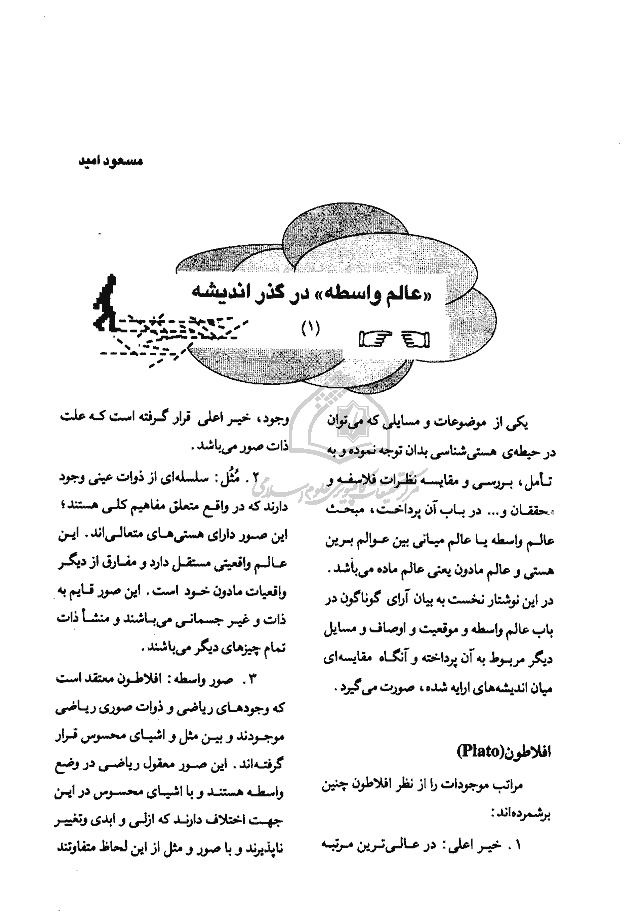 مسعود امید
«عالم واسطه» در گذر اندیشه
(۱)
یکی از موضوعات و مسایلی که می‌توان
در حیطه‌ی هستی‌شناسی بدان توجه نموده و به
تأمل، بررسی و مقایسه نظرات فلاسفه و
محققان و... در باب آن پرداخت، مبحث
عالم واسطه یا عالم میانی بین عوالم برین
هستی و عالم مادون یعنی عالم ماده می‌باشد.
در این نوشتار نخست به بیان آرای گوناگون در
باب عالم واسطه و موقعیت و اوصاف و مسایل
دیگر مربوط به آن پرداخته و آنگاه مقایسه‌ای
میان اندیشه‌های ارایه شده، صورت می‌گیرد.
افلاطون(Plato)
مراتب موجودات را از نظر افلاطون چنین
برشمرده‌اند:
۱. خیر اعلی: در عالی‌ترین مرتبه
وجود، خیر اعلی قرار گرفته است که علت
ذات صور می‌باشد.
۲. مُثُل: سلسله‌ای از ذوات عینی وجود
دارند که در واقع متعلق مفاهیم کلی هستند؛
این صور دارای هستی‌های متعالی‌اند. این
عالم واقعیتی مستقل دارد و مفارق از دیگر
واقعیات مادون خود است. این صور قایم به
ذات و غیر جسمانی می‌باشند و منشأ ذات
تمام چیزهای دیگر می‌باشند.
۳. صور واسطه: افلاطون معتقد است
که وجودهای ریاضی و ذوات صوری ریاضی
موجودند و بین مثل و اشیای محسوس قرار
گرفته‌اند. این صور معقول ریاضی در وضع
واسطه هستند و با اشیای محسوس در این
جهت اختلاف دارند که ازلی و ابدی وتغییر
ناپذیرند و با صور و مثل از این لحاظ متفاوتند
مرکز تحقیقات کامپیوتری علوم اسلامی